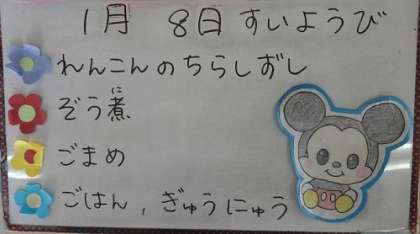 1月 8日 すいようび
れんこんのちらしずし
ぞう煮
に
ごまめ
ごはん、ぎゅうにゅう